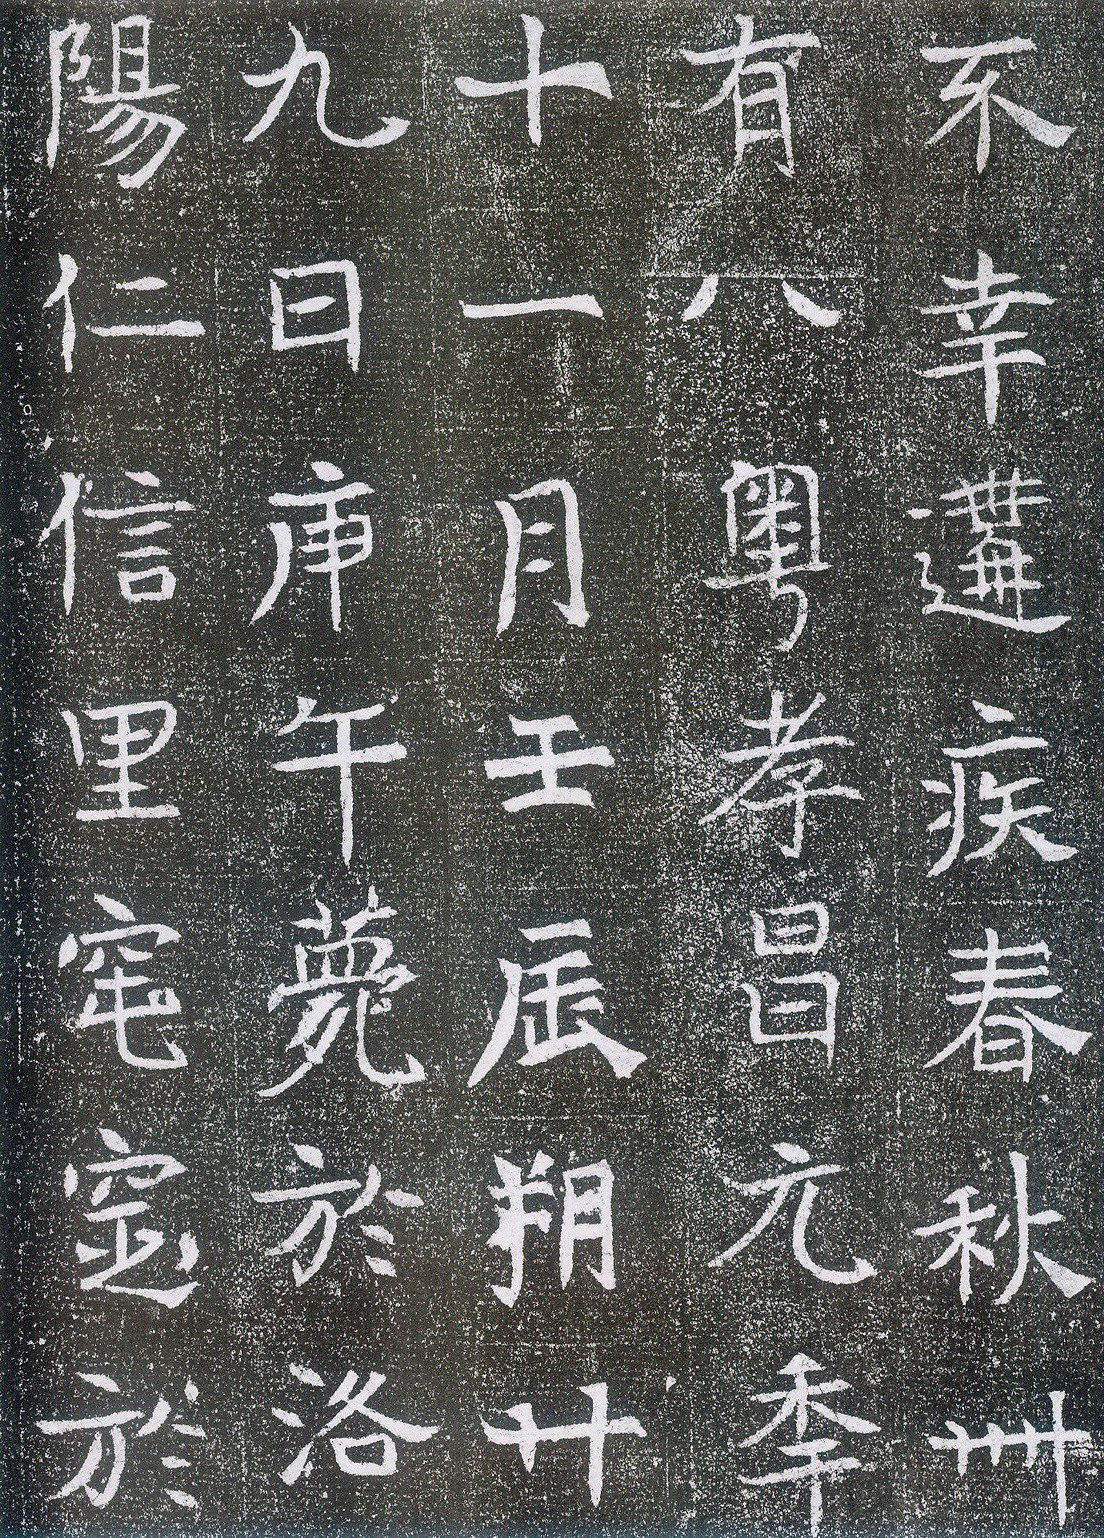 不幸遘疾春秋卌
有八粵孝昌元年
十一月壬寅朔廿
九日庚午薨於洛
陽仁信里窀窆於